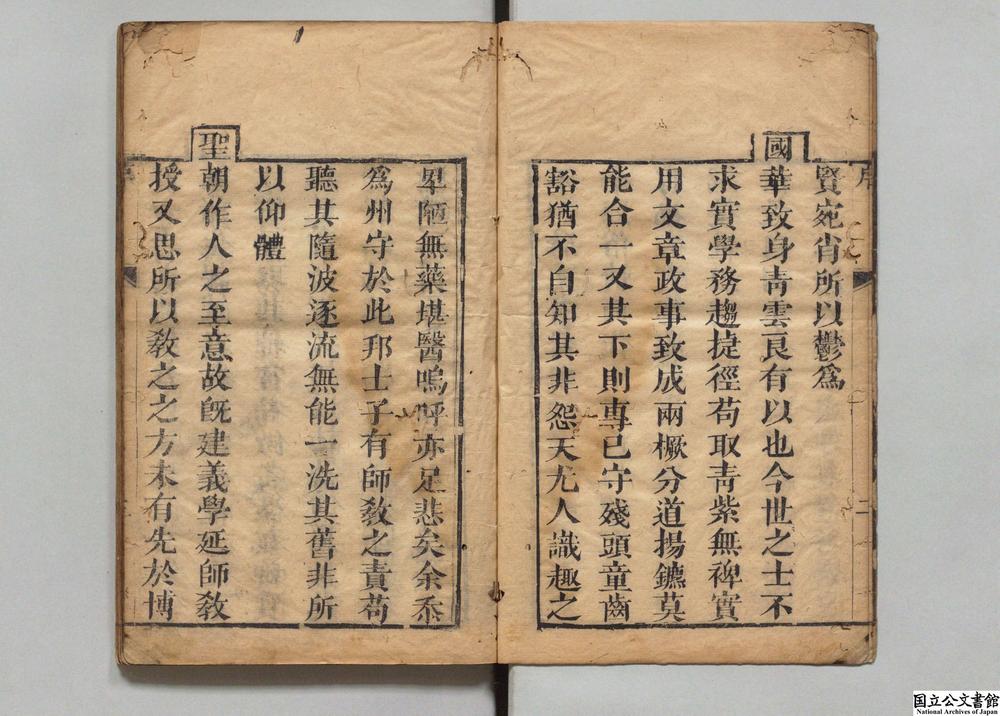 序
二
賢宛省所以鬱為
國華致身青雲良有以也今世之士不
求實學務趨捷徑苟取青紫無裨實
用文章政事致成兩橛分道揚鑣莫
能合一又其下則專已守殘頭童齒
豁猶不自知其非怨天尤人識趣之
卑陋無藥堪醫嗚呼亦足悲矣余忝
為州守於此邦士子有師敎之責苟
聽其隨波逐流無能一洗其舊非所
以仰體
聖朝作人之至意故旣建義學延師敎
授又思所以敎之之方未有先於博
国立公文書館
National Archives of Japan